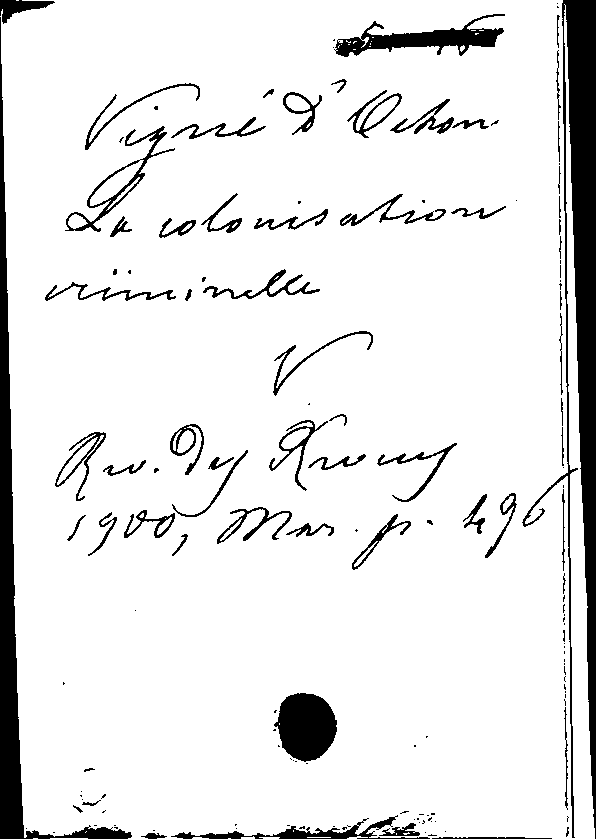 Vigné D'Octon
La colonisation
criminelle
V
Rev. des Revues
1900, Mar. p. 496